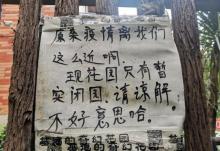 原来疫情离我们
这么近啊，
现花园只有暂
实闭园，请谅解，
不好意思哈。